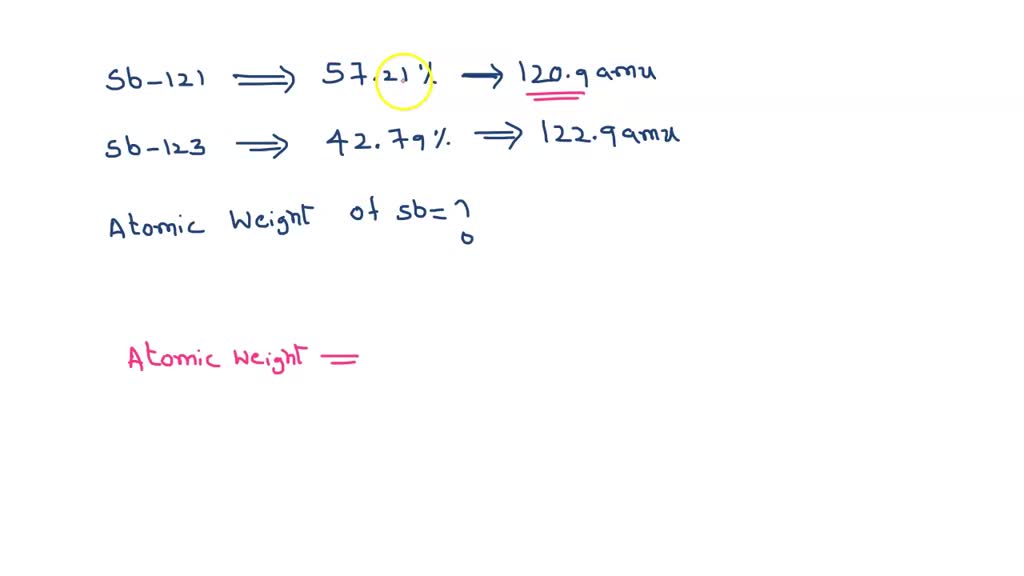 Sb-121 ⟹ 57.21% → 120.9amu
Sb-123 ⟹ 42.79% ⟹ 122.9amu
Atomic Weight of sb=?
Atomic Weight =